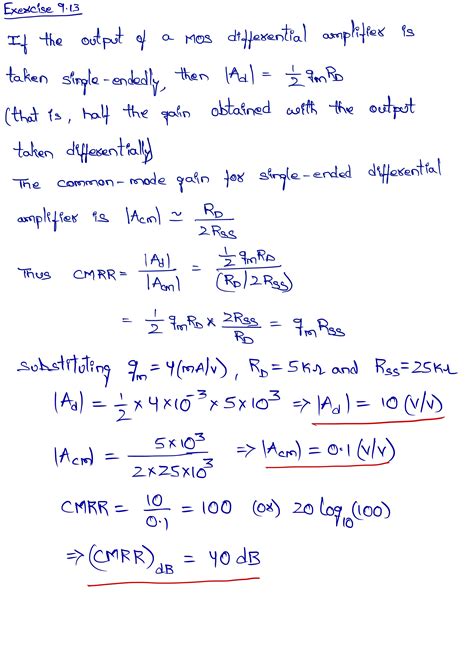 Exercise 9.13
If the output of a MOS differential amplifier is
taken single-endedly, then |Ad| = 1/2 gmRD
(that is, half the gain obtained with the output
taken differentially)
The common-mode gain for single-ended differential
amplifier is |Acm| ≃ RD/2RSS
Thus CMRR = |Ad|/|Acm| = (1/2 gmRD)/(RD/2RSS)
= 1/2 gmRD × 2RSS/RD = gmRSS
substituting gm = 4(mA/V), RD = 5KΩ and RSS = 25KΩ
|Ad| = 1/2 × 4×10⁻³ × 5×10³ ⇒ |Ad| = 10 (V/V)
|Acm| = 5×10³/2×25×10³ ⇒ |Acm| = 0.1 (V/V)
CMRR = 10/0.1 = 100 (or) 20 log₁₀(100)
⇒ (CMRR)dB = 40 dB